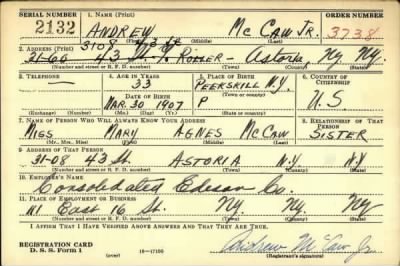 SERIAL NUMBER 1. NAME (Print) ORDER NUMBER
2132 ANDREW McCAW JR. 3738
(First) (Middle) (Last)
2. ADDRESS (Print) 3108 43 St
31-60 43 Astoria, Ny. Ny.
(Number and street or R. F. D. number) (Town) (County) (State)
3. TELEPHONE 4. AGE IN YEARS 5. PLACE OF BIRTH 6. COUNTRY OF CITIZENSHIP
— 33 PEERSKILL N.Y.
DATE OF BIRTH (Town or county)
MAR. 30 1907 P U.S
(Exchange) (Number) (Mo.) (Day) (Yr.) (State or country)
7. NAME OF PERSON WHO WILL ALWAYS KNOW YOUR ADDRESS 8. RELATIONSHIP OF THAT PERSON
MISS MARY AGNES McCAW SISTER
(Mr., Mrs., Miss) (First) (Middle) (Last)
9. ADDRESS OF THAT PERSON
31-08 43 St. ASTORIA N.Y N.Y
(Number and street or R. F. D. number) (Town) (County) (State)
10. EMPLOYER'S NAME
Consolidated Edison Co.
11. PLACE OF EMPLOYMENT OR BUSINESS
East 16 St. Ny. Ny. Ny
(Number and street or R. F. D. number) (Town) (County) (State)
I AFFIRM THAT I HAVE VERIFIED ABOVE ANSWERS AND THAT THEY ARE TRUE.
REGISTRATION CARD
D. S. S. Form 1 (over) 16—17105 Andrew McCaw Jr
(Registrant's signature)